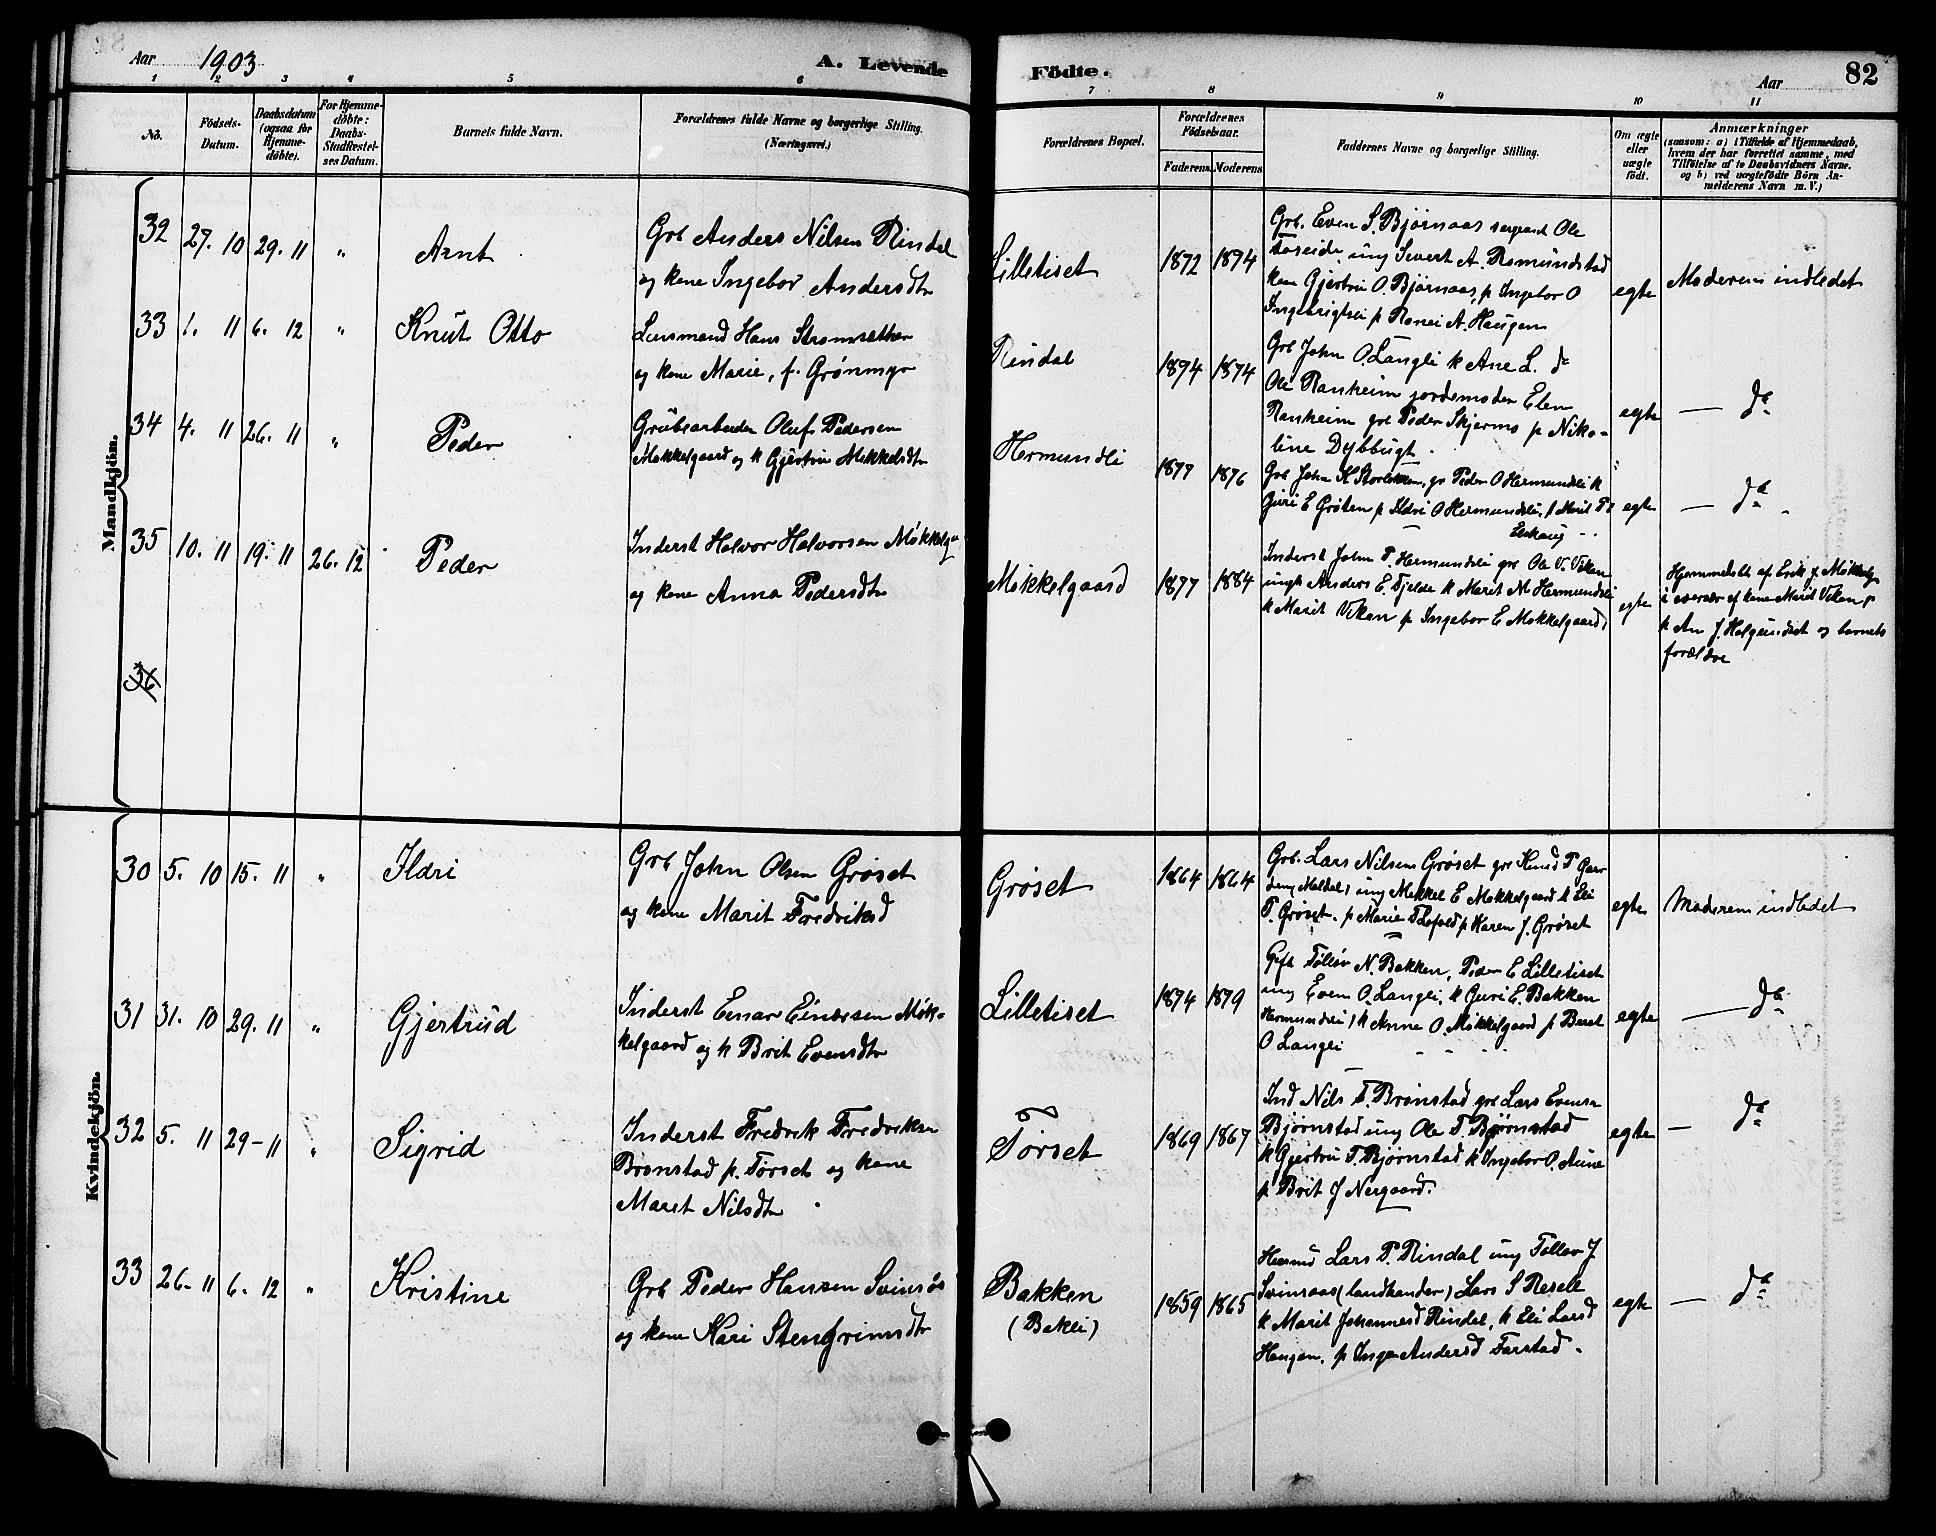 Aar 1903
A. Levende Födte.
Aar
82
1 2 3 4 5 6 7 8 9 10 11
No.
Födsels-Datum.
Daabsdatum (ogsaa for Hjemmedöbte).
For Hjemmedöbte: Daabs-Stadfæstelses Datum.
Barnets fulde Navn.
Forældrenes fulde Navne og borgerlige Stilling. (Næringsvei.)
Forældrenes Bopæl.
Forældrenes Födselsaar.
Faderens. Moderens.
Faddernes Navne og borgerlige Stilling.
Om ægte eller uægte födt.
Anmærkninger
(saasom: a) i Tilfælde af Hjemmedaab, hvem der har forrettet samme, med Tilföielse af to Daabsvidners Navne. og b) ved uægtefödte Börn Anmelderens Navn m. V.)
Mandkjön.
32 27. 10 29. 11 " Arnt
Grb Anders Nilsen Rindal
og kone Ingebor Andersdtr
Lilletiset 1872 1894
Grb. Even S. Bjørnaas Ole
ung Sivert A. Romundstad
kone Gjertru O. Bjørnaas, p Ingebor O
p Ranei A. Haugen
egte Moderen indledet
33 1. 11 6. 12 " Knut Otto
Lensmand Hans Strømsæther
og kone Marie, f. Grønmyr
Rindal 1894 1874
Grb John O. Langli k Ane L. do
Ole Ranheim jordemoder Elen
Ranheim grb Peder Skjermo p Niko-
line Dybbugt.
egte — do
34 4. 11 26. 11 " Peder
Grubearbeider Oluf Pedersen
Møkkelgaard og k Gjertru Mikkelsdtr
Hermundli 1877 1876
Grb John H Storløkken, gr Peder O Hermundli k
Guri E Grøten p Ildri O Hermundli, p Marit P
egte — do
35 10. 11 19. 11 26. 12 Peder
Inderst Halvor Halvorsen Møkkelg
og kone Anna Pedersdtr
Møkkelgaard 1877 1884
Inderst John P. Hermundli grb Ole V. Vikan
ungk Anders E. Fjelde k Marit M Hermundsli
k Marit Vikan p Ingebor E Møkkelgaard,
egte
Hjemmedøbt af Erik J. Møkkelg
i overvær af kone Marit Vikan,
k An J. Helgundset og barnets
forældre
36
Kvindekjön.
30 5. 10 15. 11 " Ildri
Grb John Olsen Grøset
og kone Marit Fredriksd
Grøset 1864 1864
Grb. Lars Nilsen Grøset grb Knud P
Meldal) ung Mekkel E Møkkelgaard k Eli
T. Grøset. p Marie p Karen J. Grøset
egte Moderen indledet
31 31. 10 29. 11 " Gjertrud
Inderst Einar Einarsen Møk-
kelgaard og k Brit Evensdtr
Lilletiset 1874 1879
Gift Tøllov N. Bakken, Peder E Lilletiset
ung Even O. Langli, k Guri E. Bakken
Hermundsli) k Anne O. Møkkelgaard p Beret
O Langli
egte — do
32 5. 11 29 – 11 " Sigrid
Inderst Fredrik Fredriksen
Brønstad p. Tørset og kone
Marit Nilsdtr
Tørset 1869 1867
Ind Nils F. Brønstad grb Lars Evensen
Bjørnstad ung Ole T. Bjørnstad
k Gjertru T. Bjørnstad k Ingebor O. Aune
p Brit J Nergaard.
egte — do
33 26. 11 6. 12 " Kristine
Grb Peder Hansen Svinsås
og kone Kari Stengrimsdtr
Bakken
(Bakli)
1859 1865
Lars P. Rindal ung Tøllov J
Svinsaas (landhandler) Lars S Resell
k Marit Johannesd Rindal, k Eli Larsd
Haugen, p Inger Andersd Farstad.
egte — do